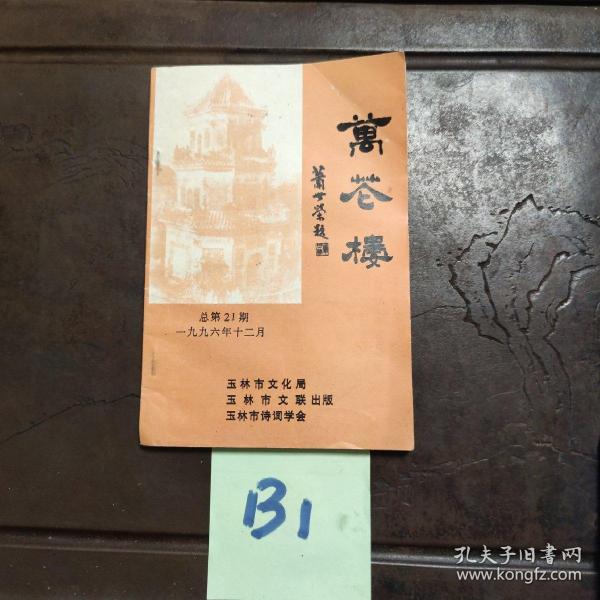 萬花樓
蕭世榮題
总第21期
一九九六年十二月
玉林市文化局
玉林市文联出版
玉林市诗词学会
B1
孔夫子旧書网
www.kongfz.com